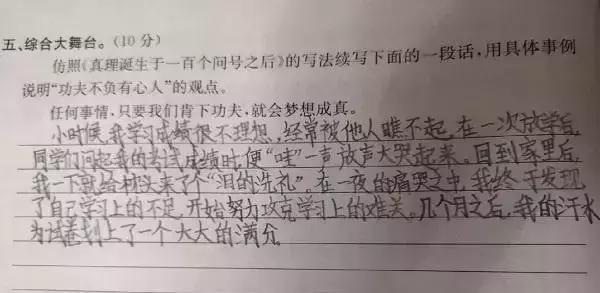 五、综合大舞台。(10分)
仿照《真理诞生于一百个问号之后》的写法续写下面的一段话,用具体事例
说明“功夫不负有心人”的观点。
任何事情,只要我们肯下功夫,就会梦想成真。
小时候,我学习成绩很不理想,经常被他人瞧不起。在一次放学后,
同学们问起我的考试成绩时,便“哇”一声放声大哭起来。回到家里后,
我一下就给枕头来了个“泪的洗礼”。在一夜的痛哭之中,我终于发现
了自己学习上的不足,开始努力攻克学习上的难关。几个月之后,我的汗水
为试卷划上了一个大大的满分。